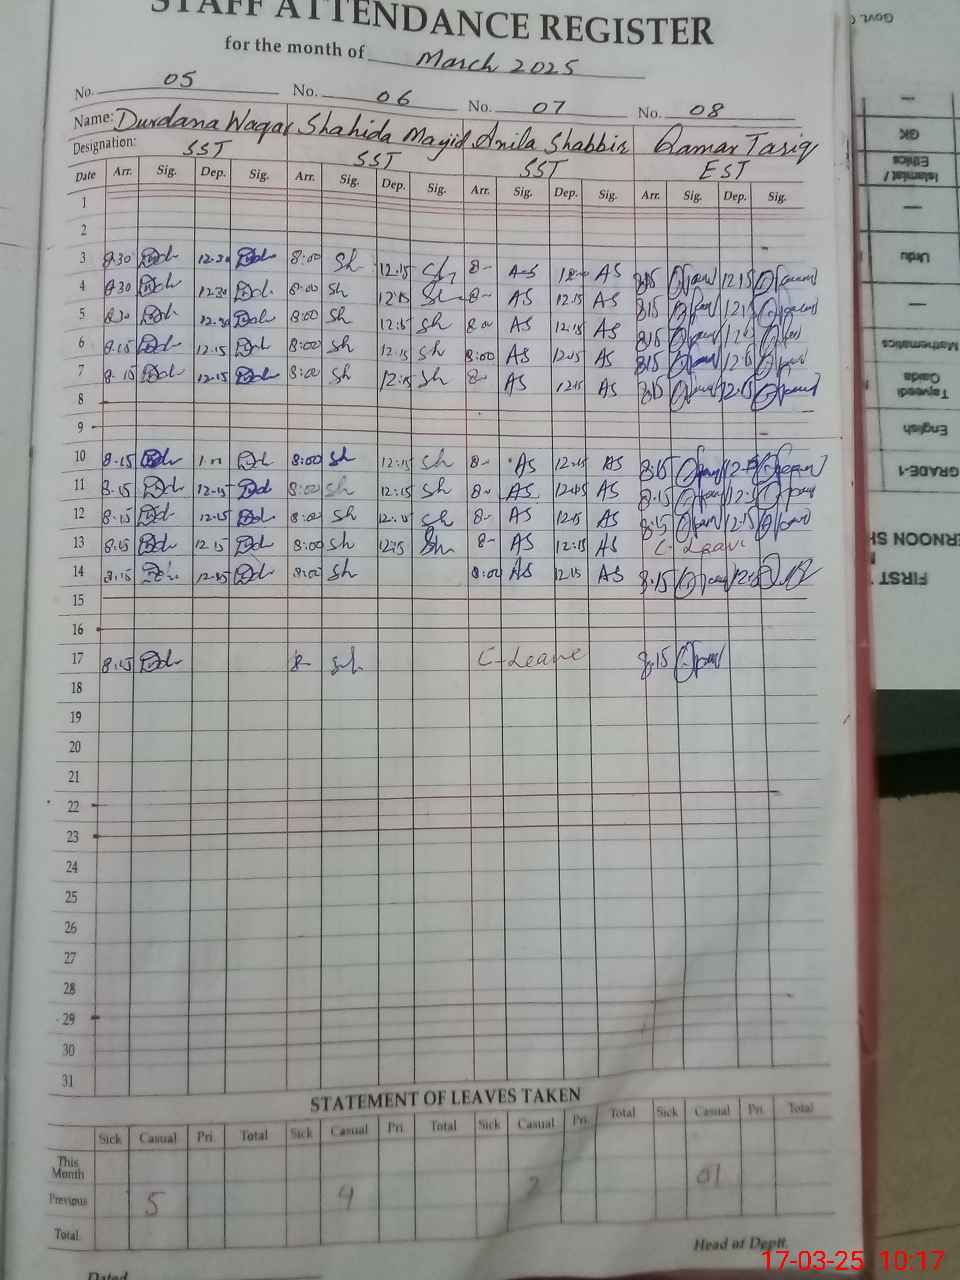 STAFF ATTENDANCE REGISTER
for the month of March 2025
No. 05 No. 06 No. 07 No. 08
Name: Durdana Waqar Shahida Majid Anila Shabbir Qamar Tariq
Designation: SST SST SST EST
Date Arr. Sig. Dep. Sig. Arr. Sig. Dep. Sig. Arr. Sig. Dep. Sig. Arr. Sig. Dep. Sig.
1
2
3 8.30 12.30 8:00 Sh 12.15 Sh 8- AS AS 8.15 12.15
4 8.30 12.30 8:00 Sh 12.15 Sh 8- AS 12.15 AS 8.15
5 8.30 12.30 8:00 Sh 12:15 Sh 8.00 AS 12.15 AS 8.15
6 8.15 12.15 8:00 Sh 12.15 Sh 8:00 AS 12.15 AS 8.15
7 8.15 12.15 8:00 Sh 12:15 Sh 8- AS 12.15 AS 8.15 12.15
8
9
10 8.15 8:00 Sh 12:15 Sh 8- AS 12.15 AS 8.15
11 8.15 12.15 8:00 Sh 12:15 Sh 8- AS 12.15 AS 8.15
12 8.15 12.15 8:00 Sh 12:15 Sh 8- AS 12.15 AS 8.15 12.15
13 8.15 12.15 8:00 Sh 12:15 Sh 8- AS 12:15 AS C-Leave
14 8.15 12.15 8:00 Sh 8:00 AS 12.15 AS 8.15
15
16
17 8.15 8- Sh C-Leave 8.15
18
19
20
21
22
23
24
25
26
27
28
29
30
31
STATEMENT OF LEAVES TAKEN
Sick Casual Pri Total Sick Casual Pri Total Sick Casual Pri. Total Sick Casual Pri. Total
This Month 01
Previous 5 4 2
Total
Head of Deptt.
Dated
17-03-25 10:17
Govt.
GK
Islamiat / Ethics
Urdu
Mathematics
Tajweedi Qaida
English
GRADE-1
ERNOON SH
FIRST